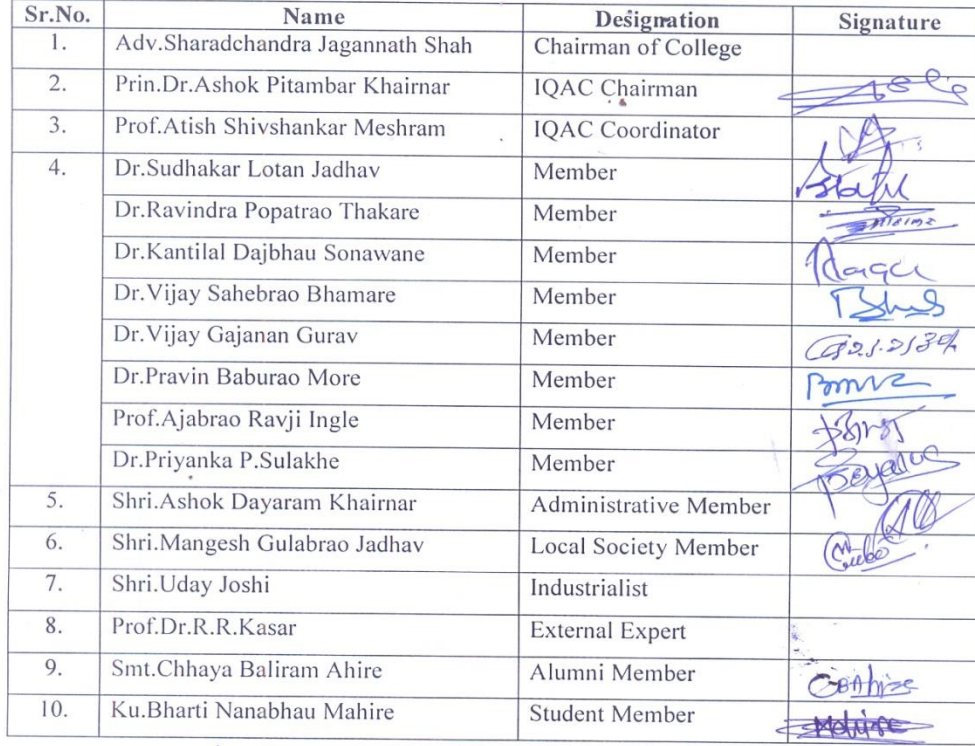 Sr.No. Name Designation Signature
1. Adv.Sharadchandra Jagannath Shah Chairman of College
2. Prin.Dr.Ashok Pitambar Khairnar IQAC Chairman
3. Prof.Atish Shivshankar Meshram IQAC Coordinator
4. Dr.Sudhakar Lotan Jadhav Member
Dr.Ravindra Popatrao Thakare Member
Dr.Kantilal Dajbhau Sonawane Member
Dr.Vijay Sahebrao Bhamare Member
Dr.Vijay Gajanan Gurav Member
Dr.Pravin Baburao More Member
Prof.Ajabrao Ravji Ingle Member
Dr.Priyanka P.Sulakhe Member
5. Shri.Ashok Dayaram Khairnar Administrative Member
6. Shri.Mangesh Gulabrao Jadhav Local Society Member
7. Shri.Uday Joshi Industrialist
8. Prof.Dr.R.R.Kasar External Expert
9. Smt.Chhaya Baliram Ahire Alumni Member CBAhire
10. Ku.Bharti Nanabhau Mahire Student Member Mahire